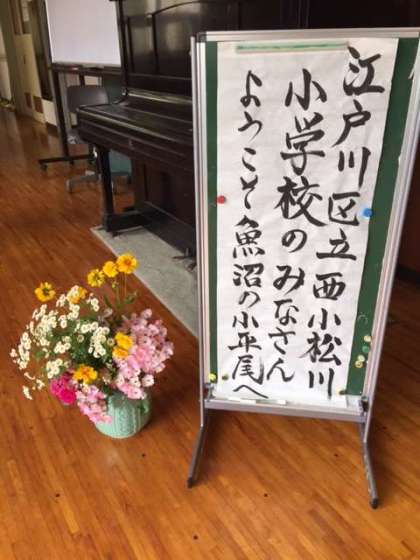 江戸川区立西小松川
小学校のみなさん
ようこそ魚沼の小平尾へ